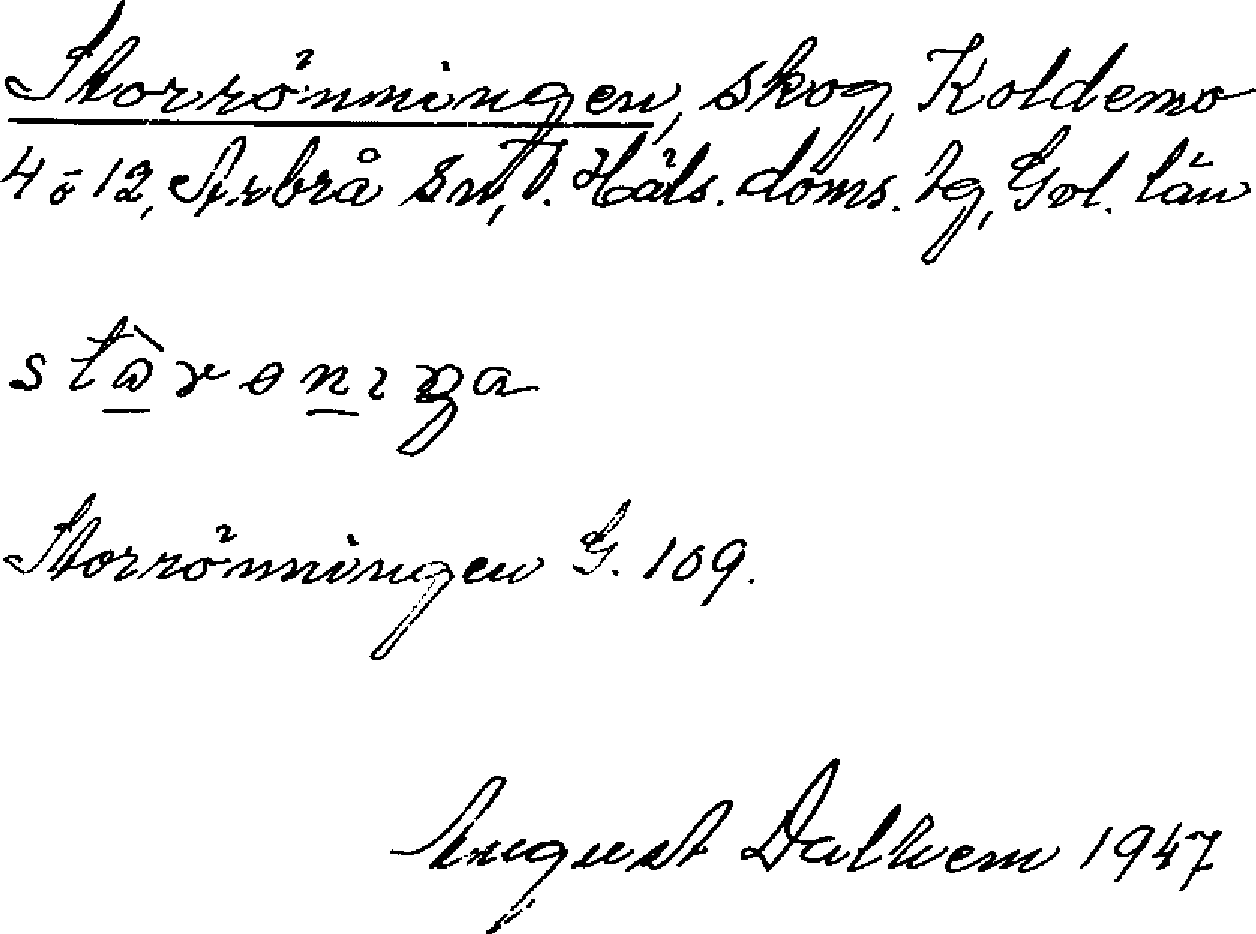 Storrönningen, skog, Koldemo
4 o 12, Arbrå sn, V. Häls. doms. tg, Gvl. län
Storrönningen G. 109.
August Dalhem 1947